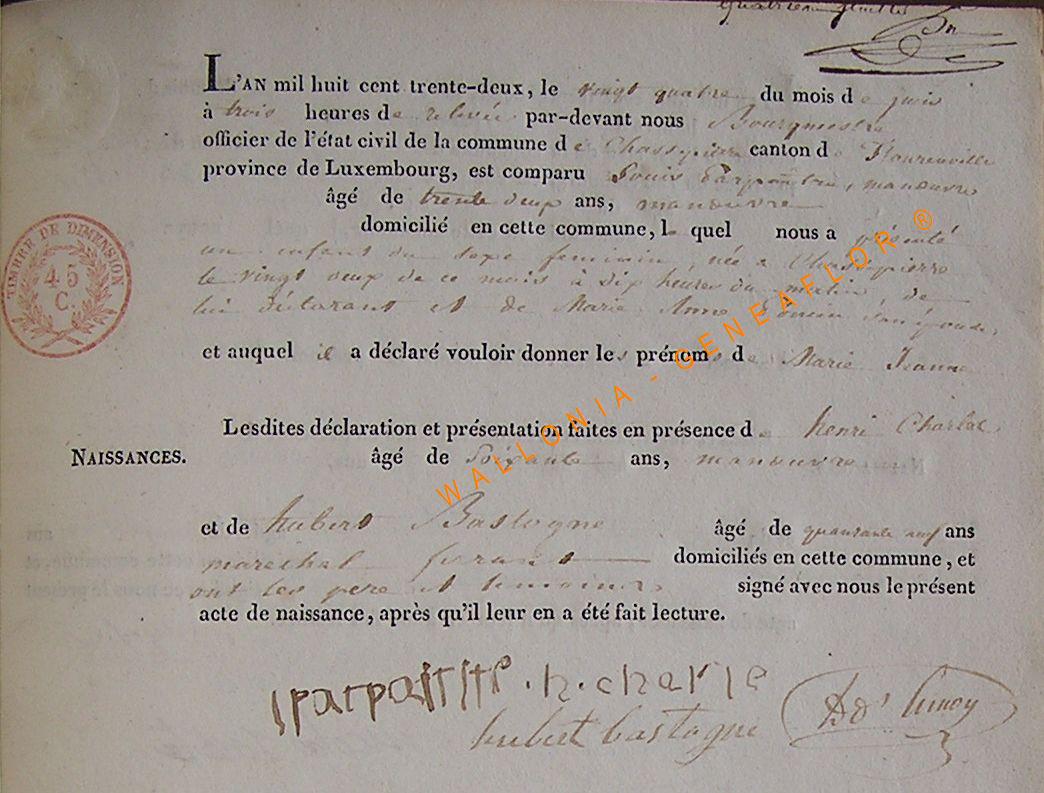 L'AN mil huit cent trente-deux, le vingt quatre du mois de juin
à trois heures de relevée par-devant nous Bourgmestre
officier de l'état civil de la commune de Chassepierre canton de Florenville
province de Luxembourg, est comparu Louis manœuvre
âgé de trente deux ans, manœuvre
domicilié en cette commune, lequel nous a présenté
un enfant du sexe feminin, née a Chassepierre
le vingt deux de ce mois à dix heures du matin, de
lui déclarant et de Marie Anne son épouse,
et auquel il a déclaré vouloir donner les prénoms de Marie Jeanne
Lesdites déclaration et présentation faites en présence de henri Charlet
NAISSANCES.
âgé de soixante ans, manœuvre
et de hubert Bastogne âgé de quarante neuf ans
marechal ferrant domiciliés en cette commune, et
ont les pere et temoins signé avec nous le présent
acte de naissance, après qu'il leur en a été fait lecture.
h. charle
hubert bastogne
TIMBRE DE DIMENSION
45
C.
WALLONIA - GENEAFLOR ®